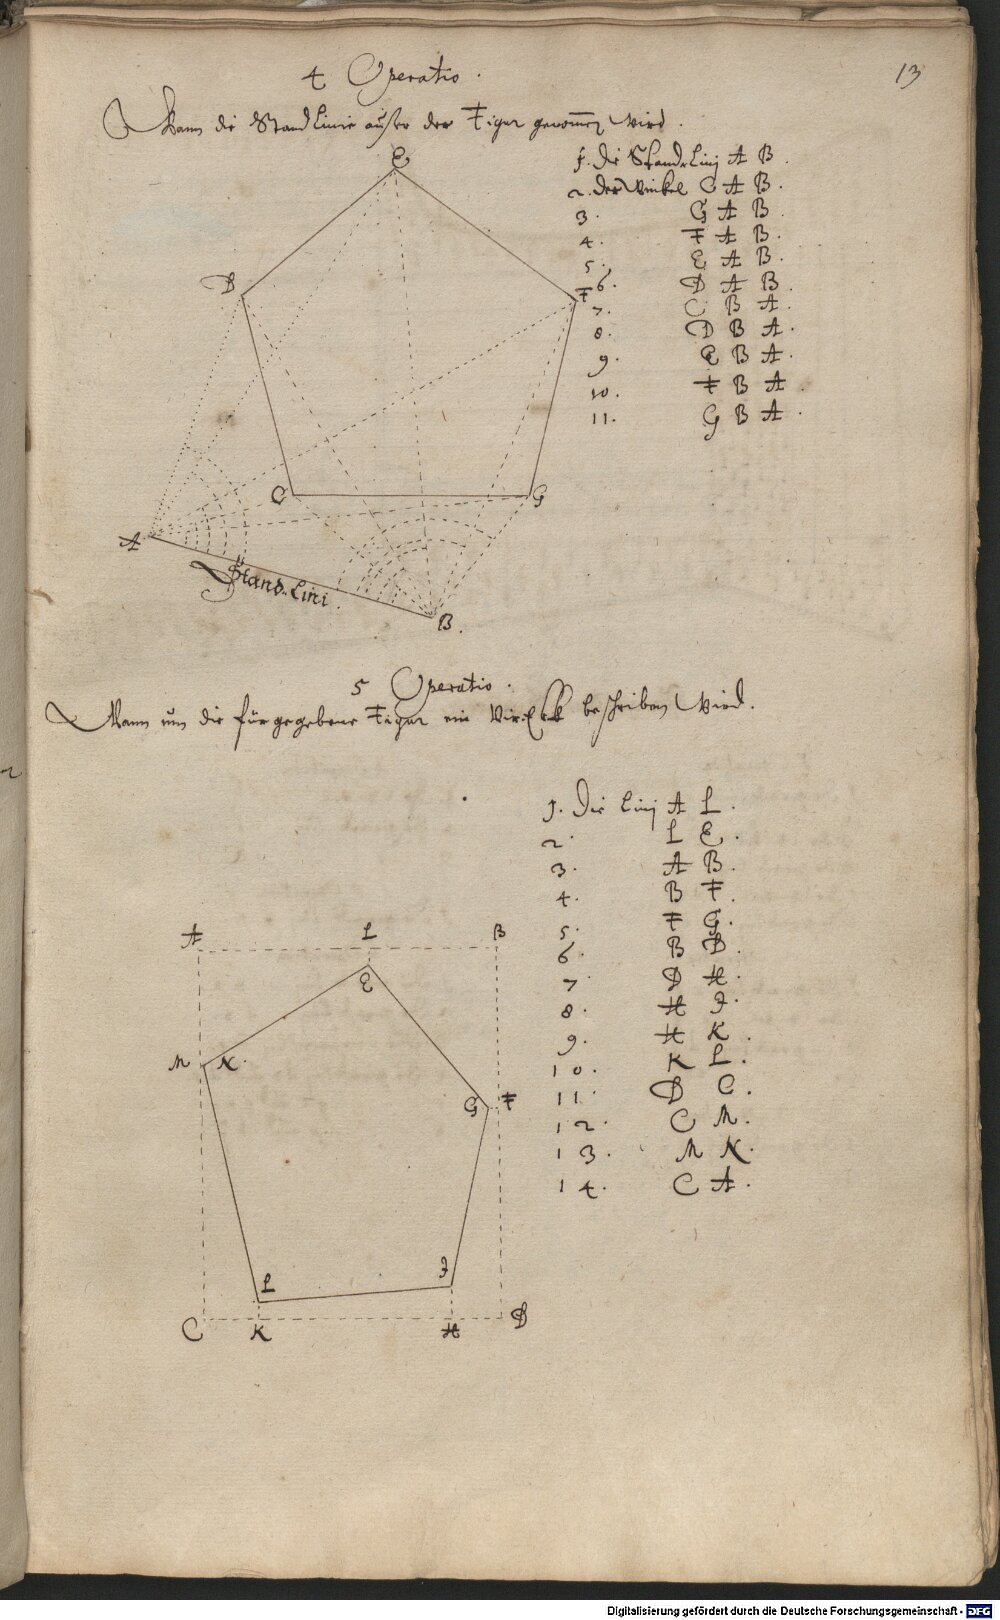 13
4 Operatio.
Wann die Stand Linie außer der Figur genom̅en wird.
1. die Stand Linj A B.
2. der Winkel C A B.
3. G A B.
4. F A B.
5. E A B.
6. D A B.
7. C B A.
8. D B A.
9. E B A.
10. F B A.
11. G B A.
E
D
F
C
G
A
Stand Lini
B.
5 Operatio.
Wann um die fürgegebene Figur ein VierEck beschriben Wird.
1. Die Linj A L.
2. L E.
3. A B.
4. B F.
5. F G.
6. B D.
7. D H.
8. H J.
9. H K.
10. K L.
11. D C.
12. C M.
13. M N.
14. C A.
A L B
E
M N.
G F
L J
C K H D
Digitalisierung gefördert durch die Deutsche Forschungsgemeinschaft - DFG